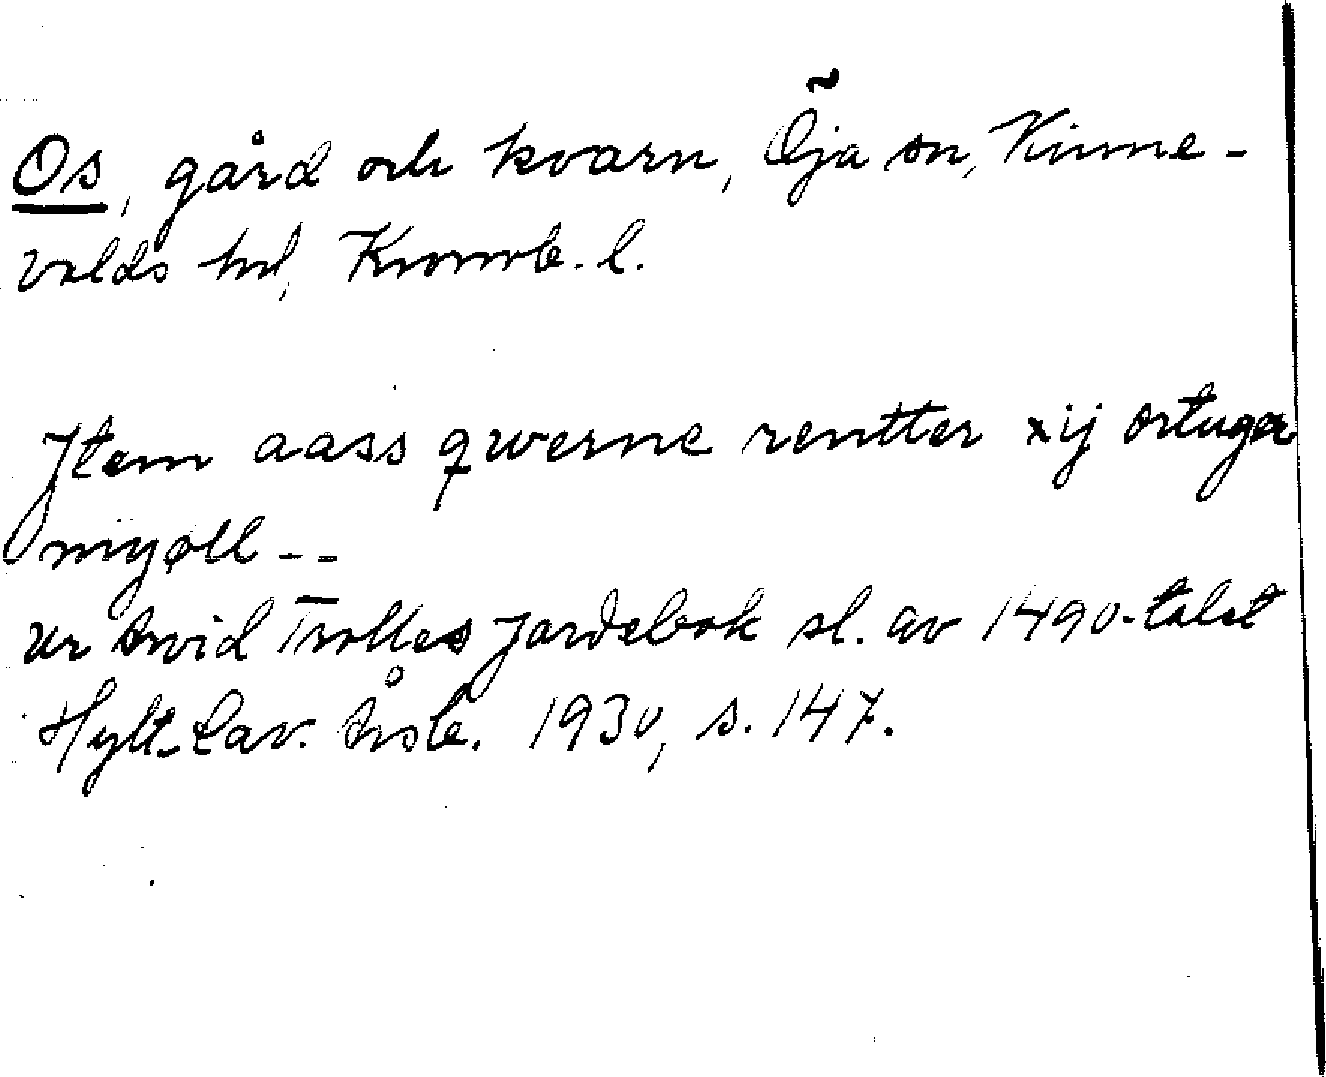 Os, gård och kvarn, Öja sn, Kinne-
valds hd, Kronob. l.
Jtem aass qwerne rentter xij ortuger
myøll --
ur Arvid Trolles Jordebok sl. av 1490-talet
Hylt-Cav. Årsb. 1930, s. 147.